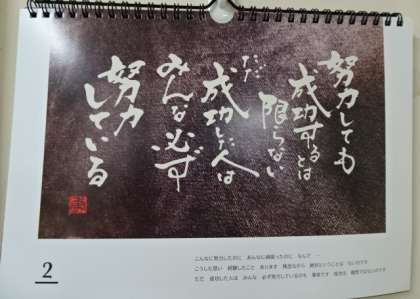 努力しても
成功するとは
限らない
ただ
成功した人は
みんな必ず
努力している
2
こんなに努力したのに あんなに頑張ったのに なんで …
こうした思い 経験したこと あります 残念ながら 絶対ということは ないのです
ただ 成功した人は みんな 必ず努力しているのも 事実です 成功は 偶然ではないのです